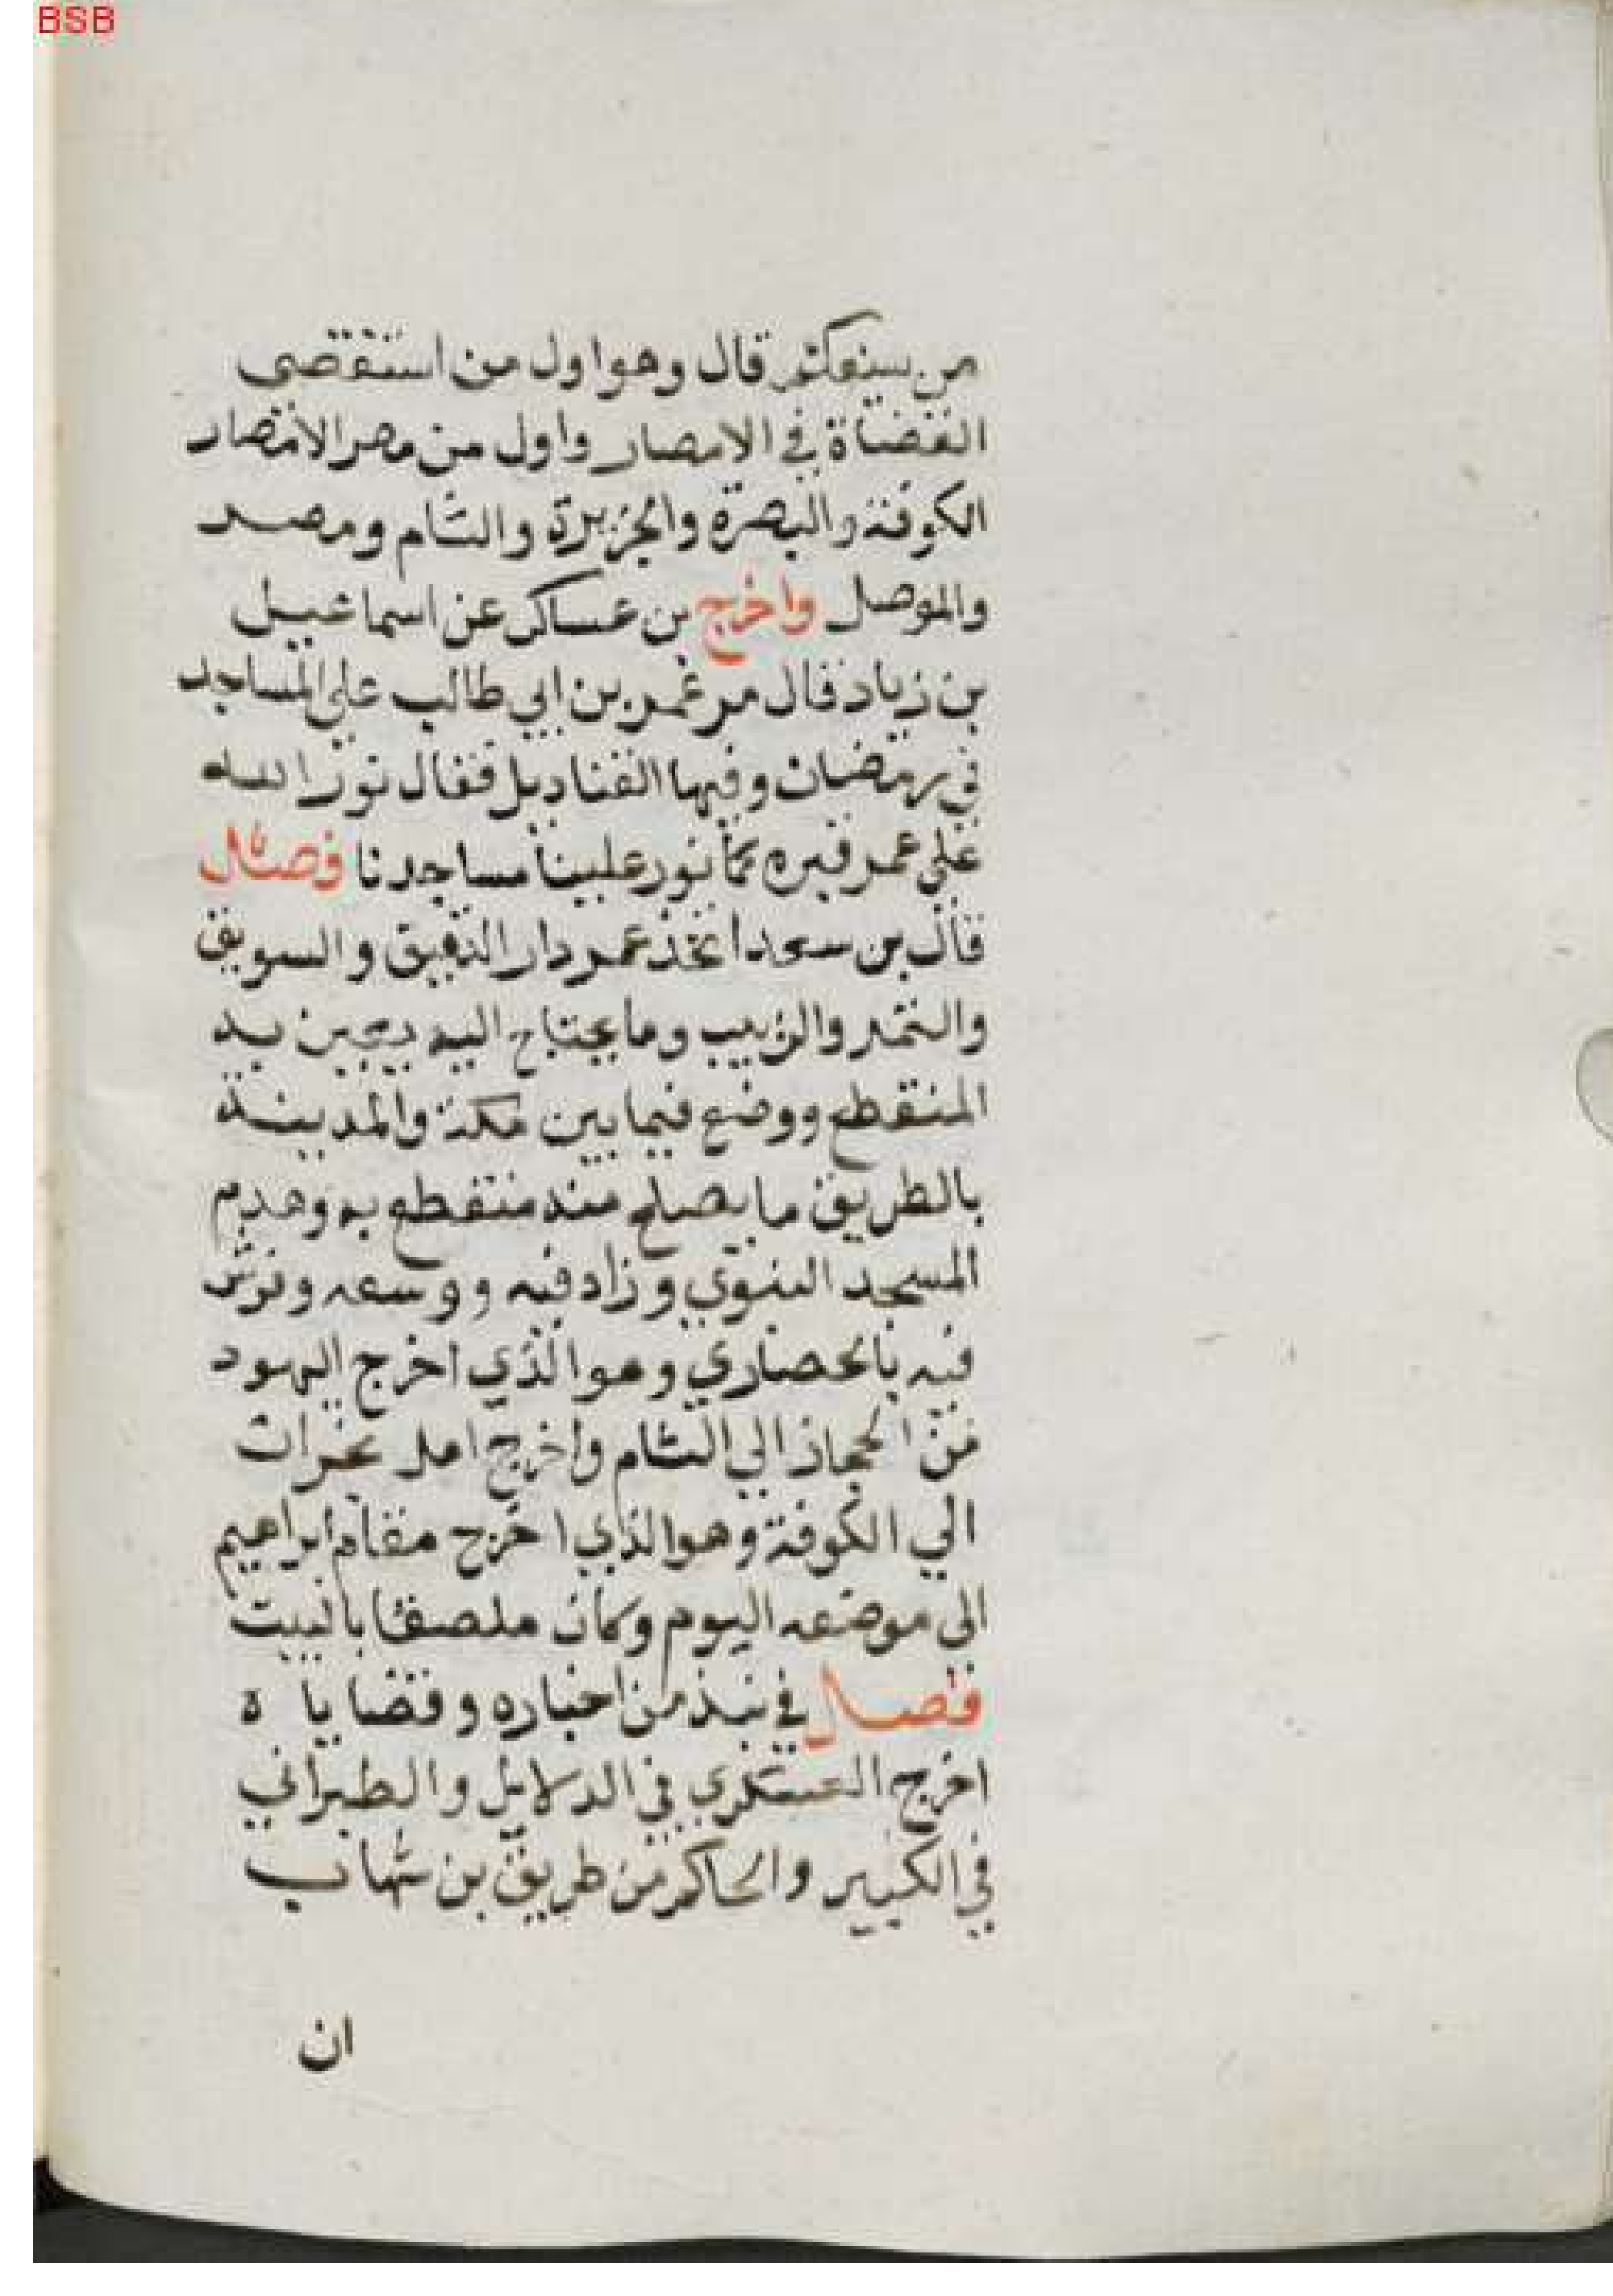 BSB
من سيفكم قال وهو اول من استقضى
القضاة في الامصار واول من مصر الامصار
الكوفة والبصرة والجزيرة والشام ومصر
والموصل واخرج بن عساكر عن اسماعيل
بن زياد قال مر عمر بن ابي طالب علي المساجد
في رمضان وفيها القناديل فقال نور الله
علي عمر قبره كما نور علينا مساجدنا فصل
قال بن سعد اتخذ عمر دار الدقيق والسويق
والتمر والزبيب وما يحتاج اليه يعين به
المنقطع ووضع فيما بين مكة والمدينة
بالطريق ما يصلح منه منقطع به وهدم
المسجد النبوي وزاد فيه ووسعه وفرش
فيه بالحصاري وهو الذي اخرج اليهود
من الحجاز الي الشام واخرج اهل نجران
الي الكوفة وهو الذي اخرج مقام ابراهيم
الى موضعه اليوم وكان ملصقا بالبيت
فصل في نبذ من اخباره وقضاياه
اخرج العسكري في الدلايل والطبراني
في الكبير والحاكم من طريق بن شهاب
ان